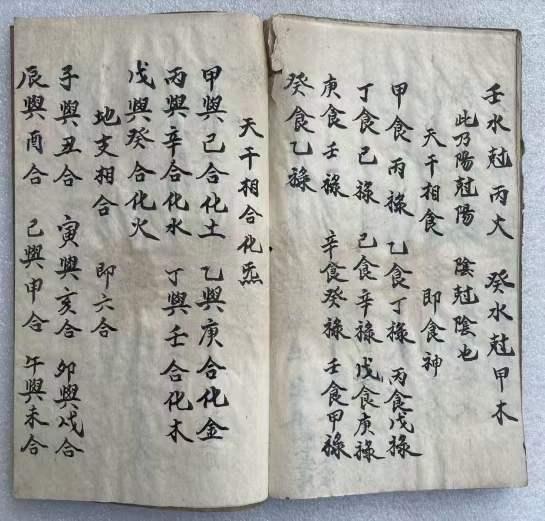 壬水尅丙火 癸水尅甲木
此乃陽尅陽 陰尅陰也
天干相食 即食神
甲食丙祿 乙食丁祿 丙食戊祿
丁食己祿 己食辛祿 戊食庚祿
庚食壬祿 辛食癸祿 壬食甲祿
癸食乙祿
天干相合化炁
甲與己合化土 乙與庚合化金
丙與辛合化水 丁與壬合化木
戊與癸合化火
地支相合 即六合
子與丑合 寅與亥合 卯與戌合
辰與酉合 巳與申合 午與未合